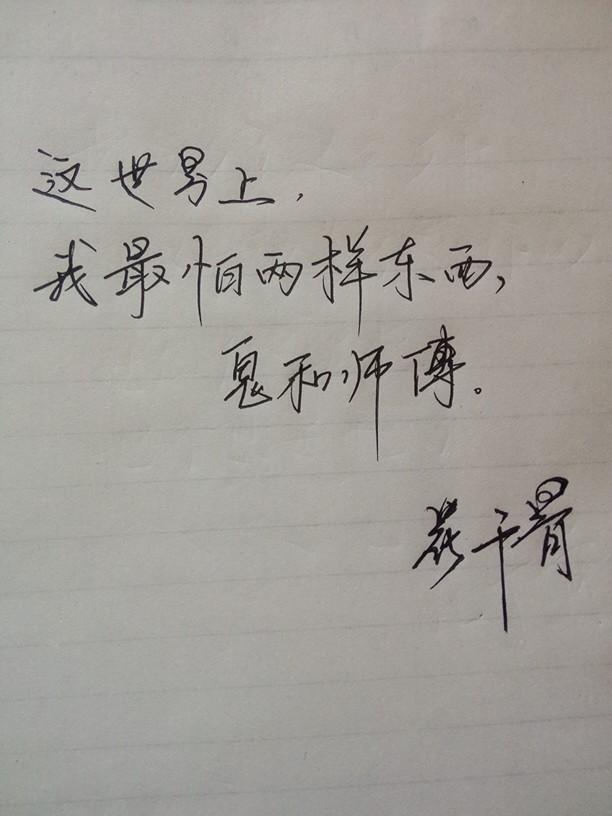 这世界上,
我最怕两样东西,
鬼和师傅。
花千骨